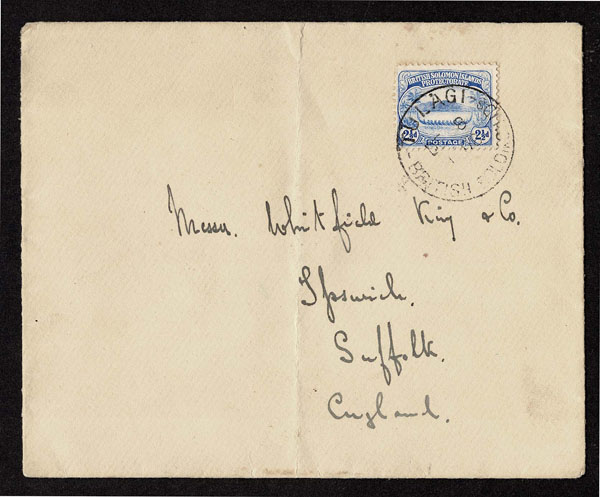 BRITISH SOLOMON ISLANDS
PROTECTORATE
2½d POSTAGE 2½d
TULAGI
BRITISH SOLOMON IS
Messrs. Whitfield King & Co.
Ipswich.
Suffolk.
England.